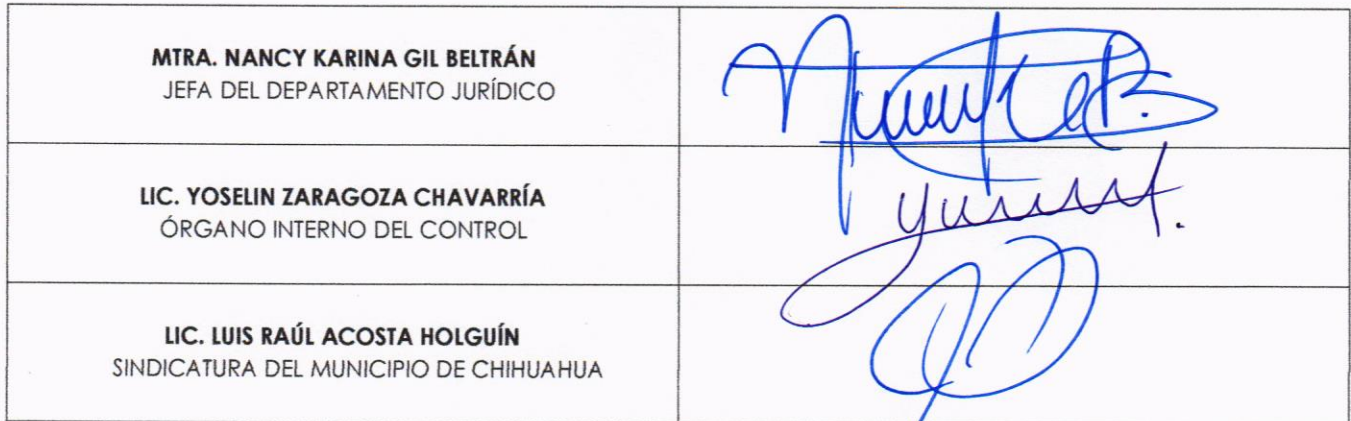 MTRA. NANCY KARINA GIL BELTRÁN
JEFA DEL DEPARTAMENTO JURÍDICO
LIC. YOSELIN ZARAGOZA CHAVARRÍA
ÓRGANO INTERNO DEL CONTROL
LIC. LUIS RAÚL ACOSTA HOLGUÍN
SINDICATURA DEL MUNICIPIO DE CHIHUAHUA